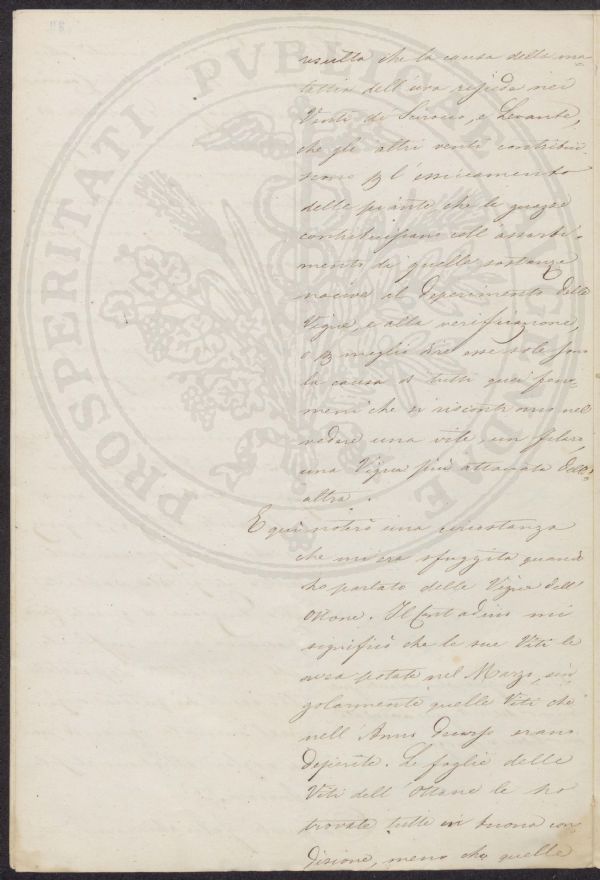 PROSPERITATI PUBLICAE AUGENDAE
risulta che la causa della ma=
lattia dell'uva risieda nei
Venti di Scirocco, e Levante,
che gli altri venti contribui=
scono p l'essicamento
delle piante che le
contribuiscano coll'assorbi=
mento di quelle sostanze
nocive al deperimento delle
Vigne, e alla verificazione,
o p meglio dire esse sole sono
la causa di tutti quei feno=
meni che si riscontrano nel
vedere una vite, un filare,
una Vigna più attaccata dell'
altra.
E qui noterò una circostanza
che mi era sfuggita quando
ho parlato delle Vigne dell'
Ottone. Il Contadino mi
significò che le sue Viti le
avea potate nel Marzo, sin
golarmente quelle Viti che
nell'Anno decorso erano
deperite. Le foglie delle
Viti dell'Ottone le ho
trovate tutte in buona con
dizione, meno che quelle